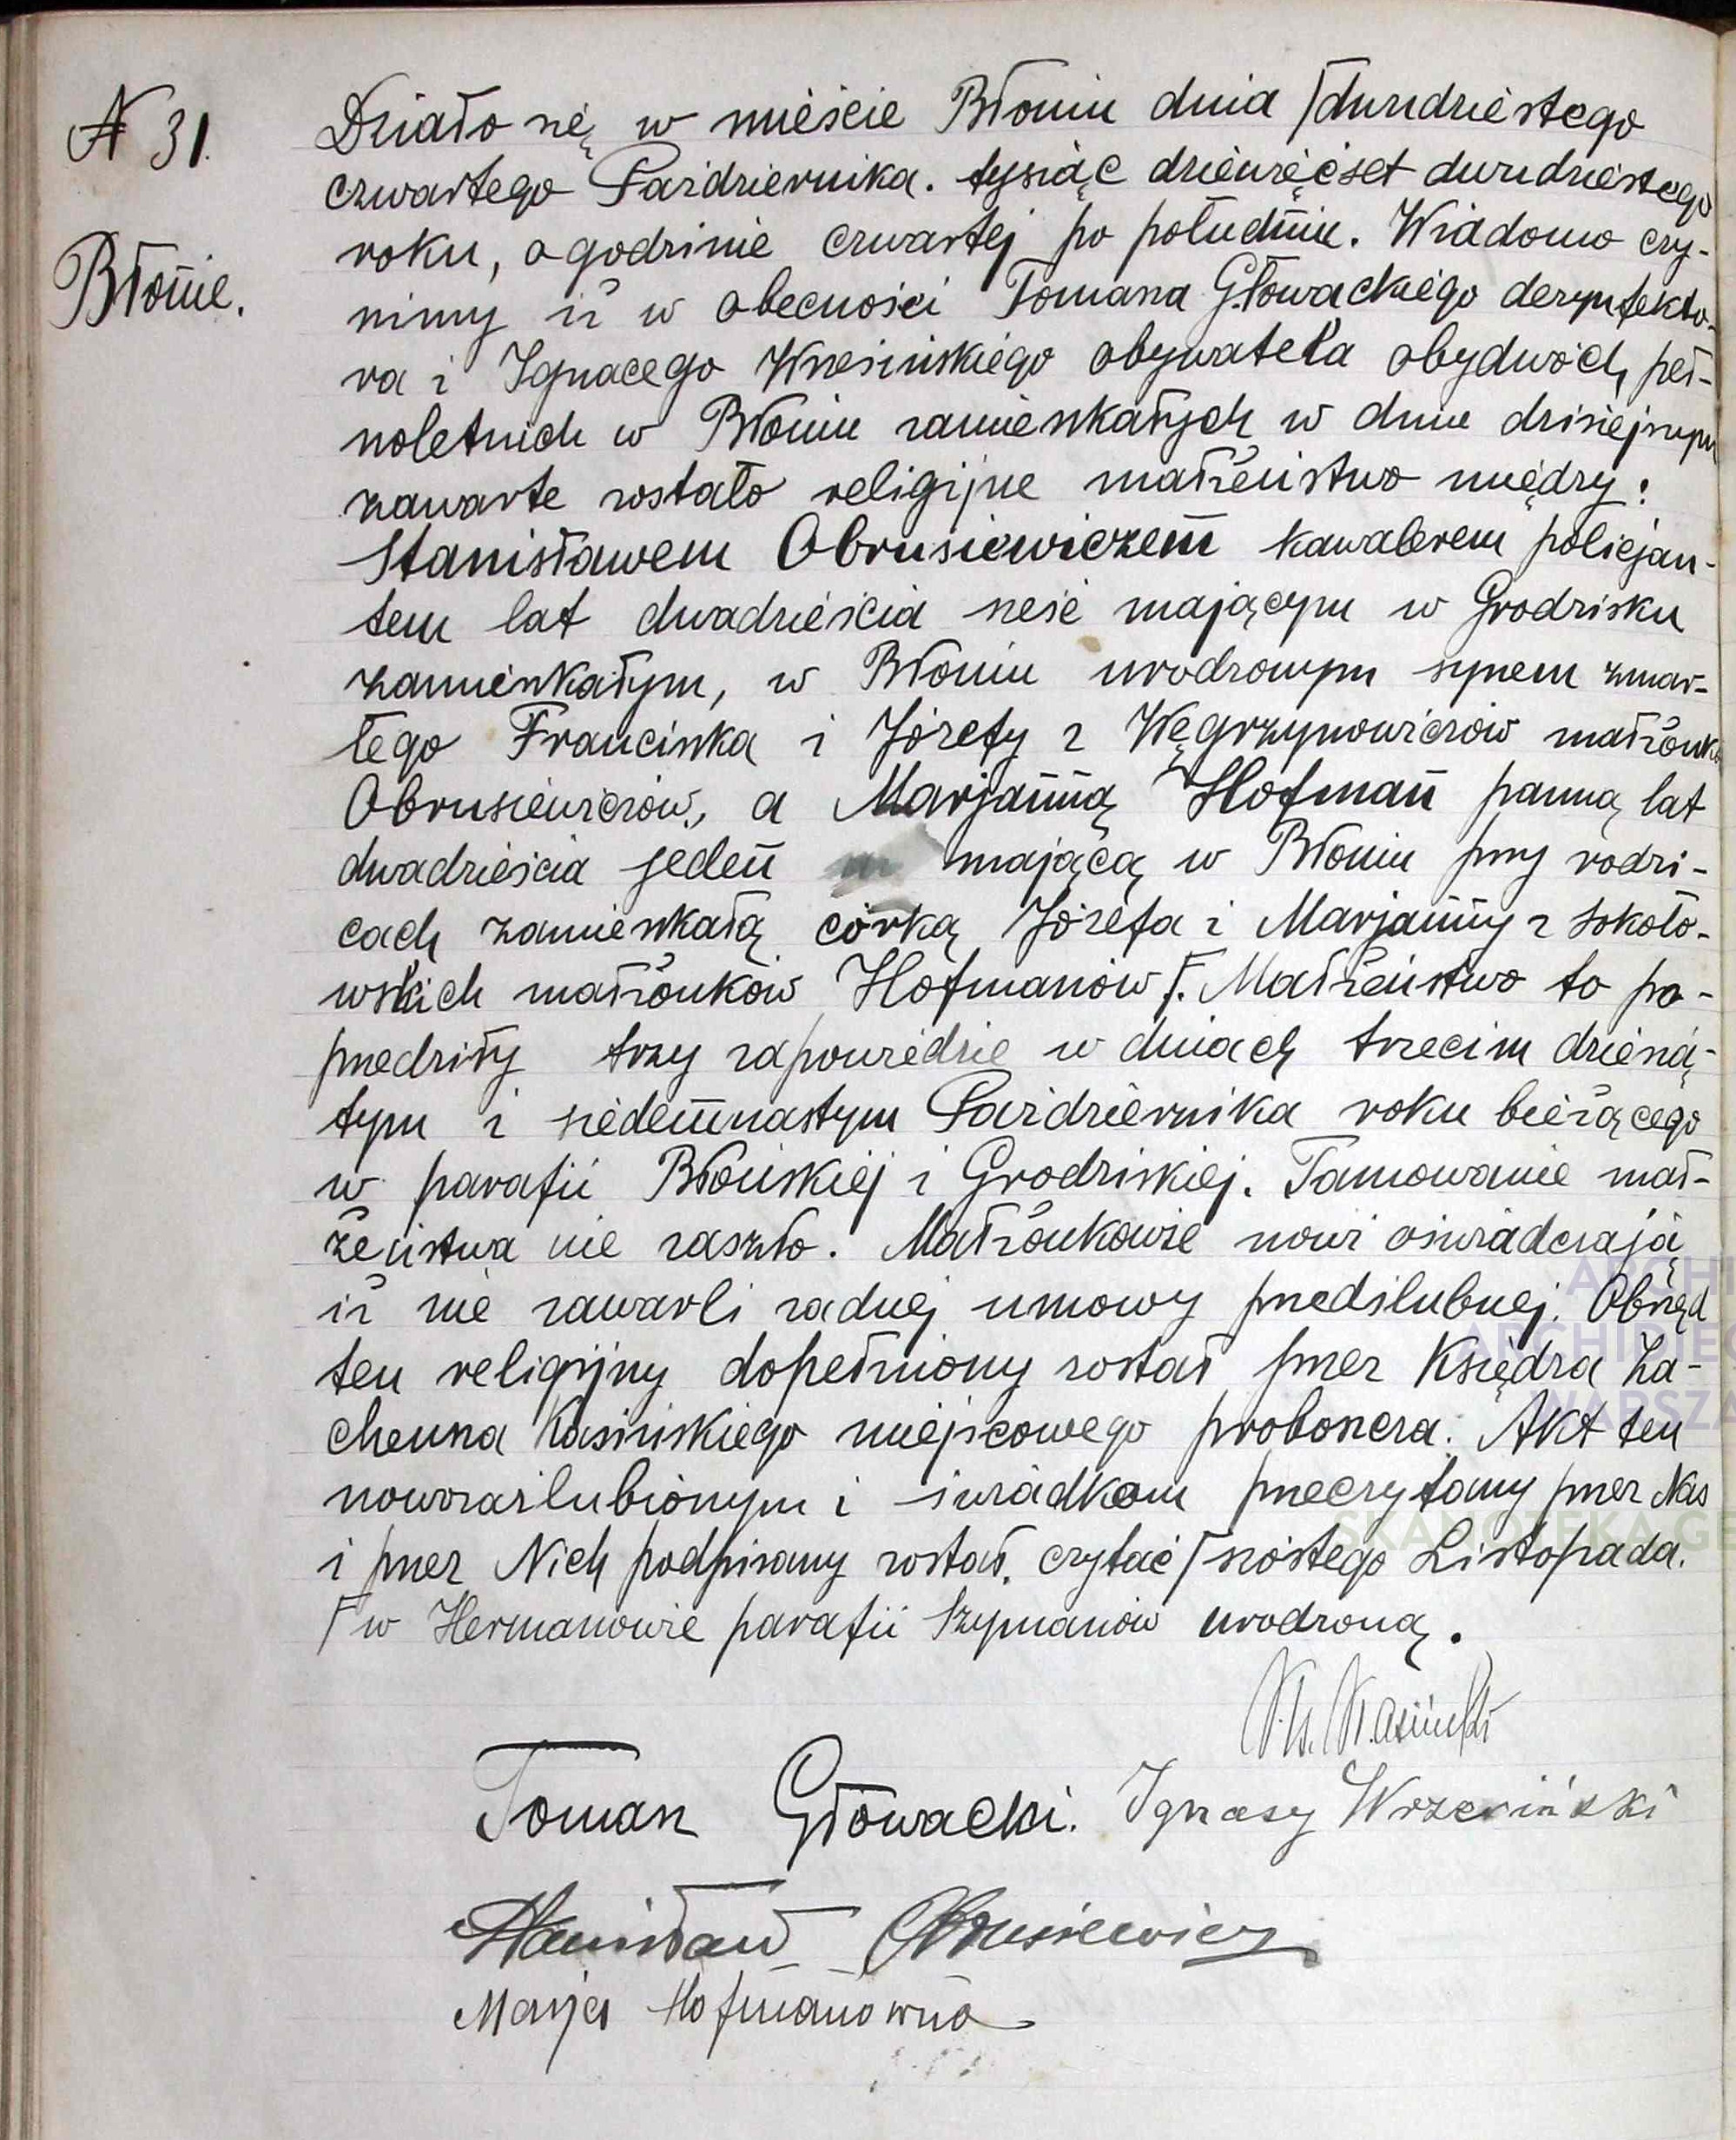 N 31.
Błonie.
Działo się w mieście Błoniu dnia /dwudziestego
czwartego Października. tysiąc dziewięćset dwudziestego
roku, o godzinie czwartej po południu. Wiadomo czy-
nimy iż w obecności Tomasza Głowackiego dezynfekto-
ra i Ignacego Wrzesińskiego obywatela obydwóch peł-
noletnich w Błoniu zamieszkałych w dniu dzisiejszym
zawarte zostało religijne małżeństwo między:
Stanisławem Obrusiewiczem kawalerem policjan-
tem lat dwadzieścia sześć mającym w Grodzisku
zamieszkałym, w Błoniu urodzonym synem zmar-
łego Franciszka i Józefy z Węgrzynowiczów małżonków
Obrusiewiczów, a Marjanną Hofman panną lat
dwadzieścia jeden mającą w Błoniu przy rodzi-
cach zamieszkałą córką Józefa i Marjanny z Sokoło-
wskich małżonków Hofmanów /. Małżeństwo to po-
przedziły trzy zapowiedzie w dniach trzecim dziesią-
tym i siedemnastym Października roku bieżącego
w parafii Błońskiej i Grodziskiej. Tamowanie mał-
żeństwa nie zaszło. Małżonkowie nowi oświadczają
iż nie zawarli żadnej umowy przedślubnej. Obrzęd
ten religijny dopełniony został przez Księdza Za-
cheusza Kasińskiego miejscowego proboszcza. Akt ten
nowozaślubionym i świadkom przeczytany przez Nas
i przez Nich podpisany został. czytać / szóstego Listopada.
/ w Hermanowie parafii Szymanów urodzoną.
Ks. Kasiński
Tomasz Głowacki. Ignacy Wrzesiński
Stanisław Obrusiewicz
Marja Hofmanówna
SKANOTEKA GE